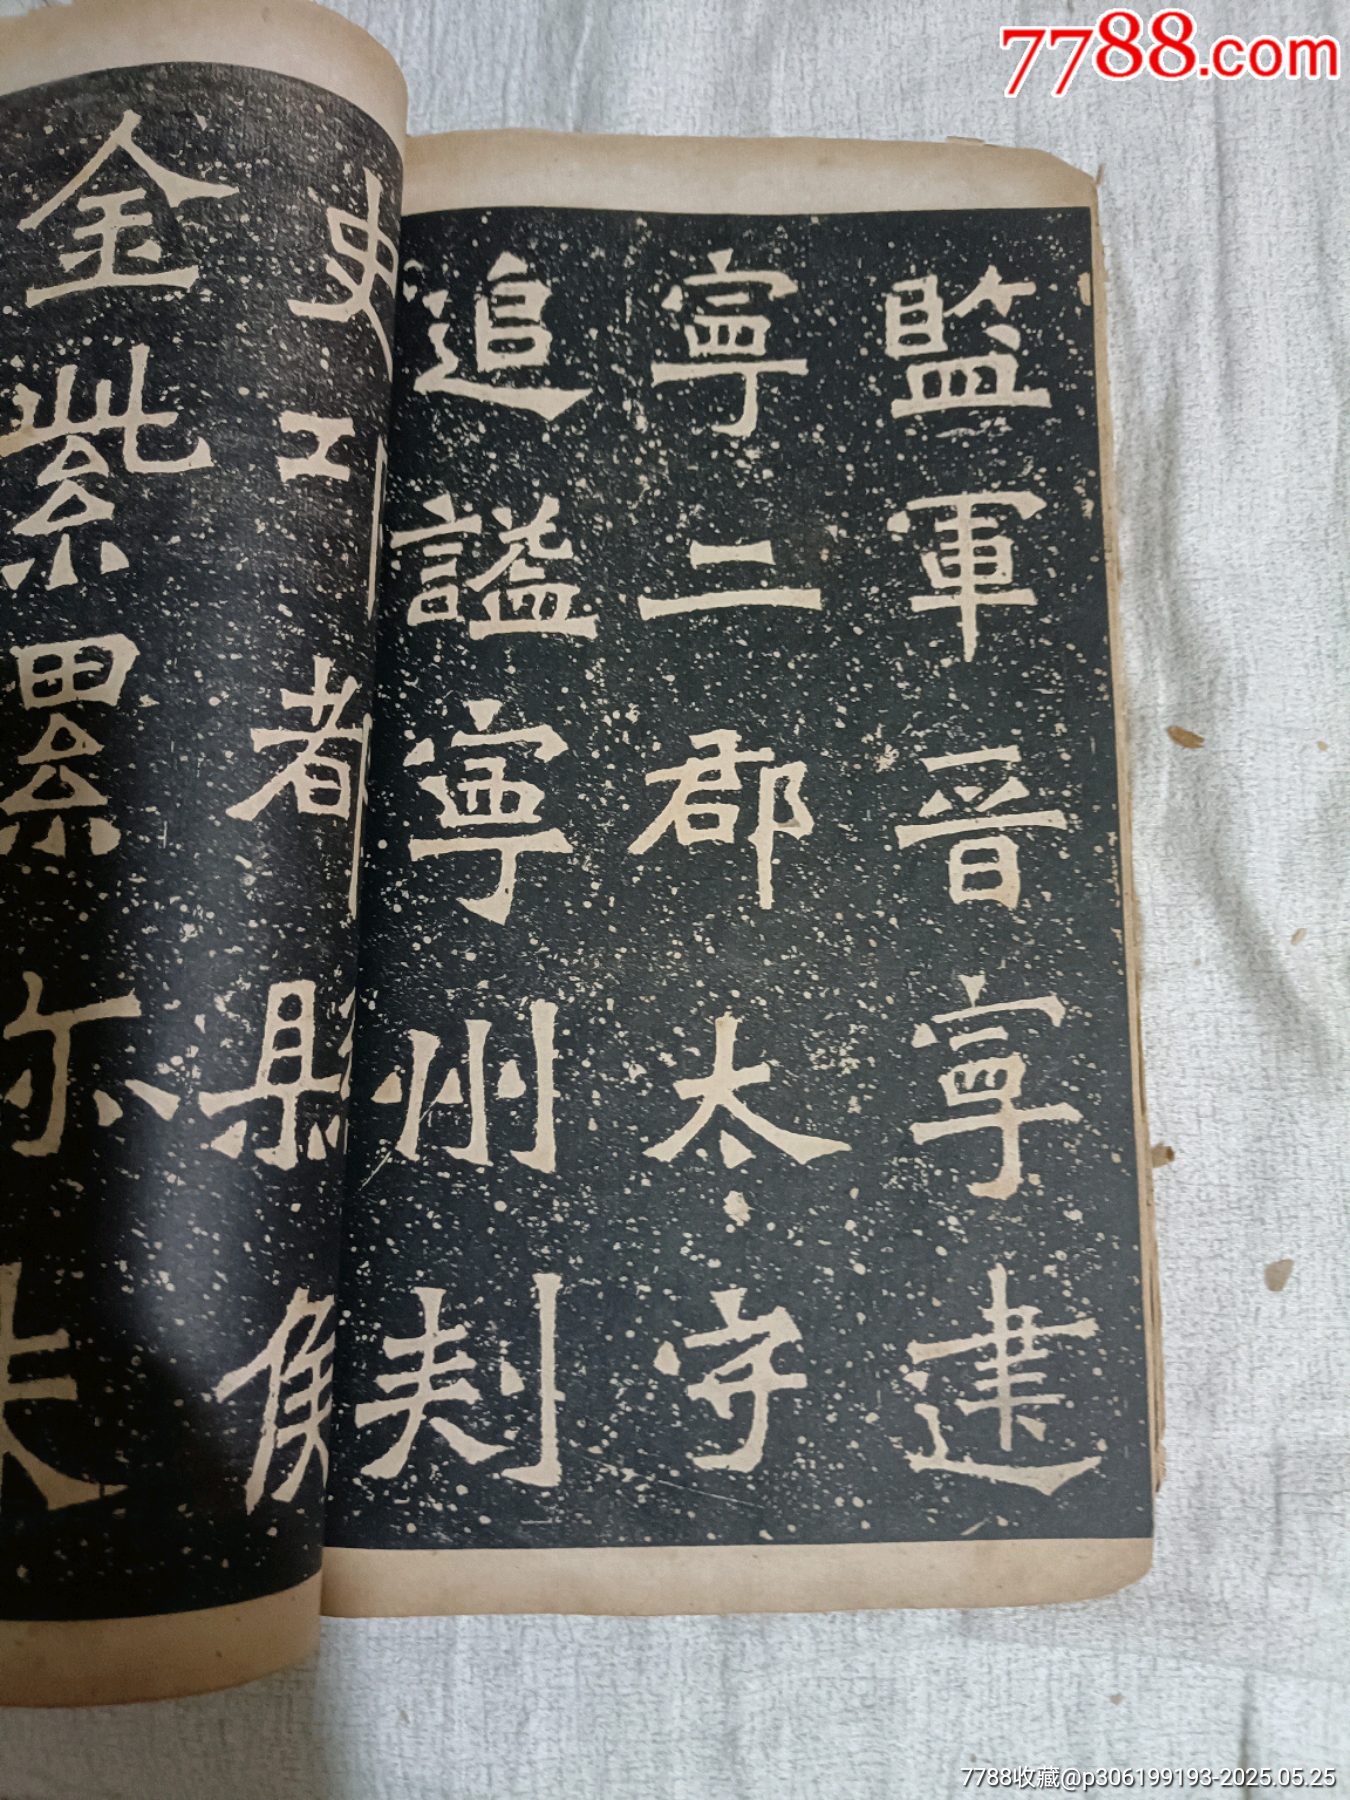 7788.com
監軍晉寧建
寧二郡太守
追謚寧州刾
史邛都縣侯
金紫累朱
7788收藏@p306199193-2025.05.25